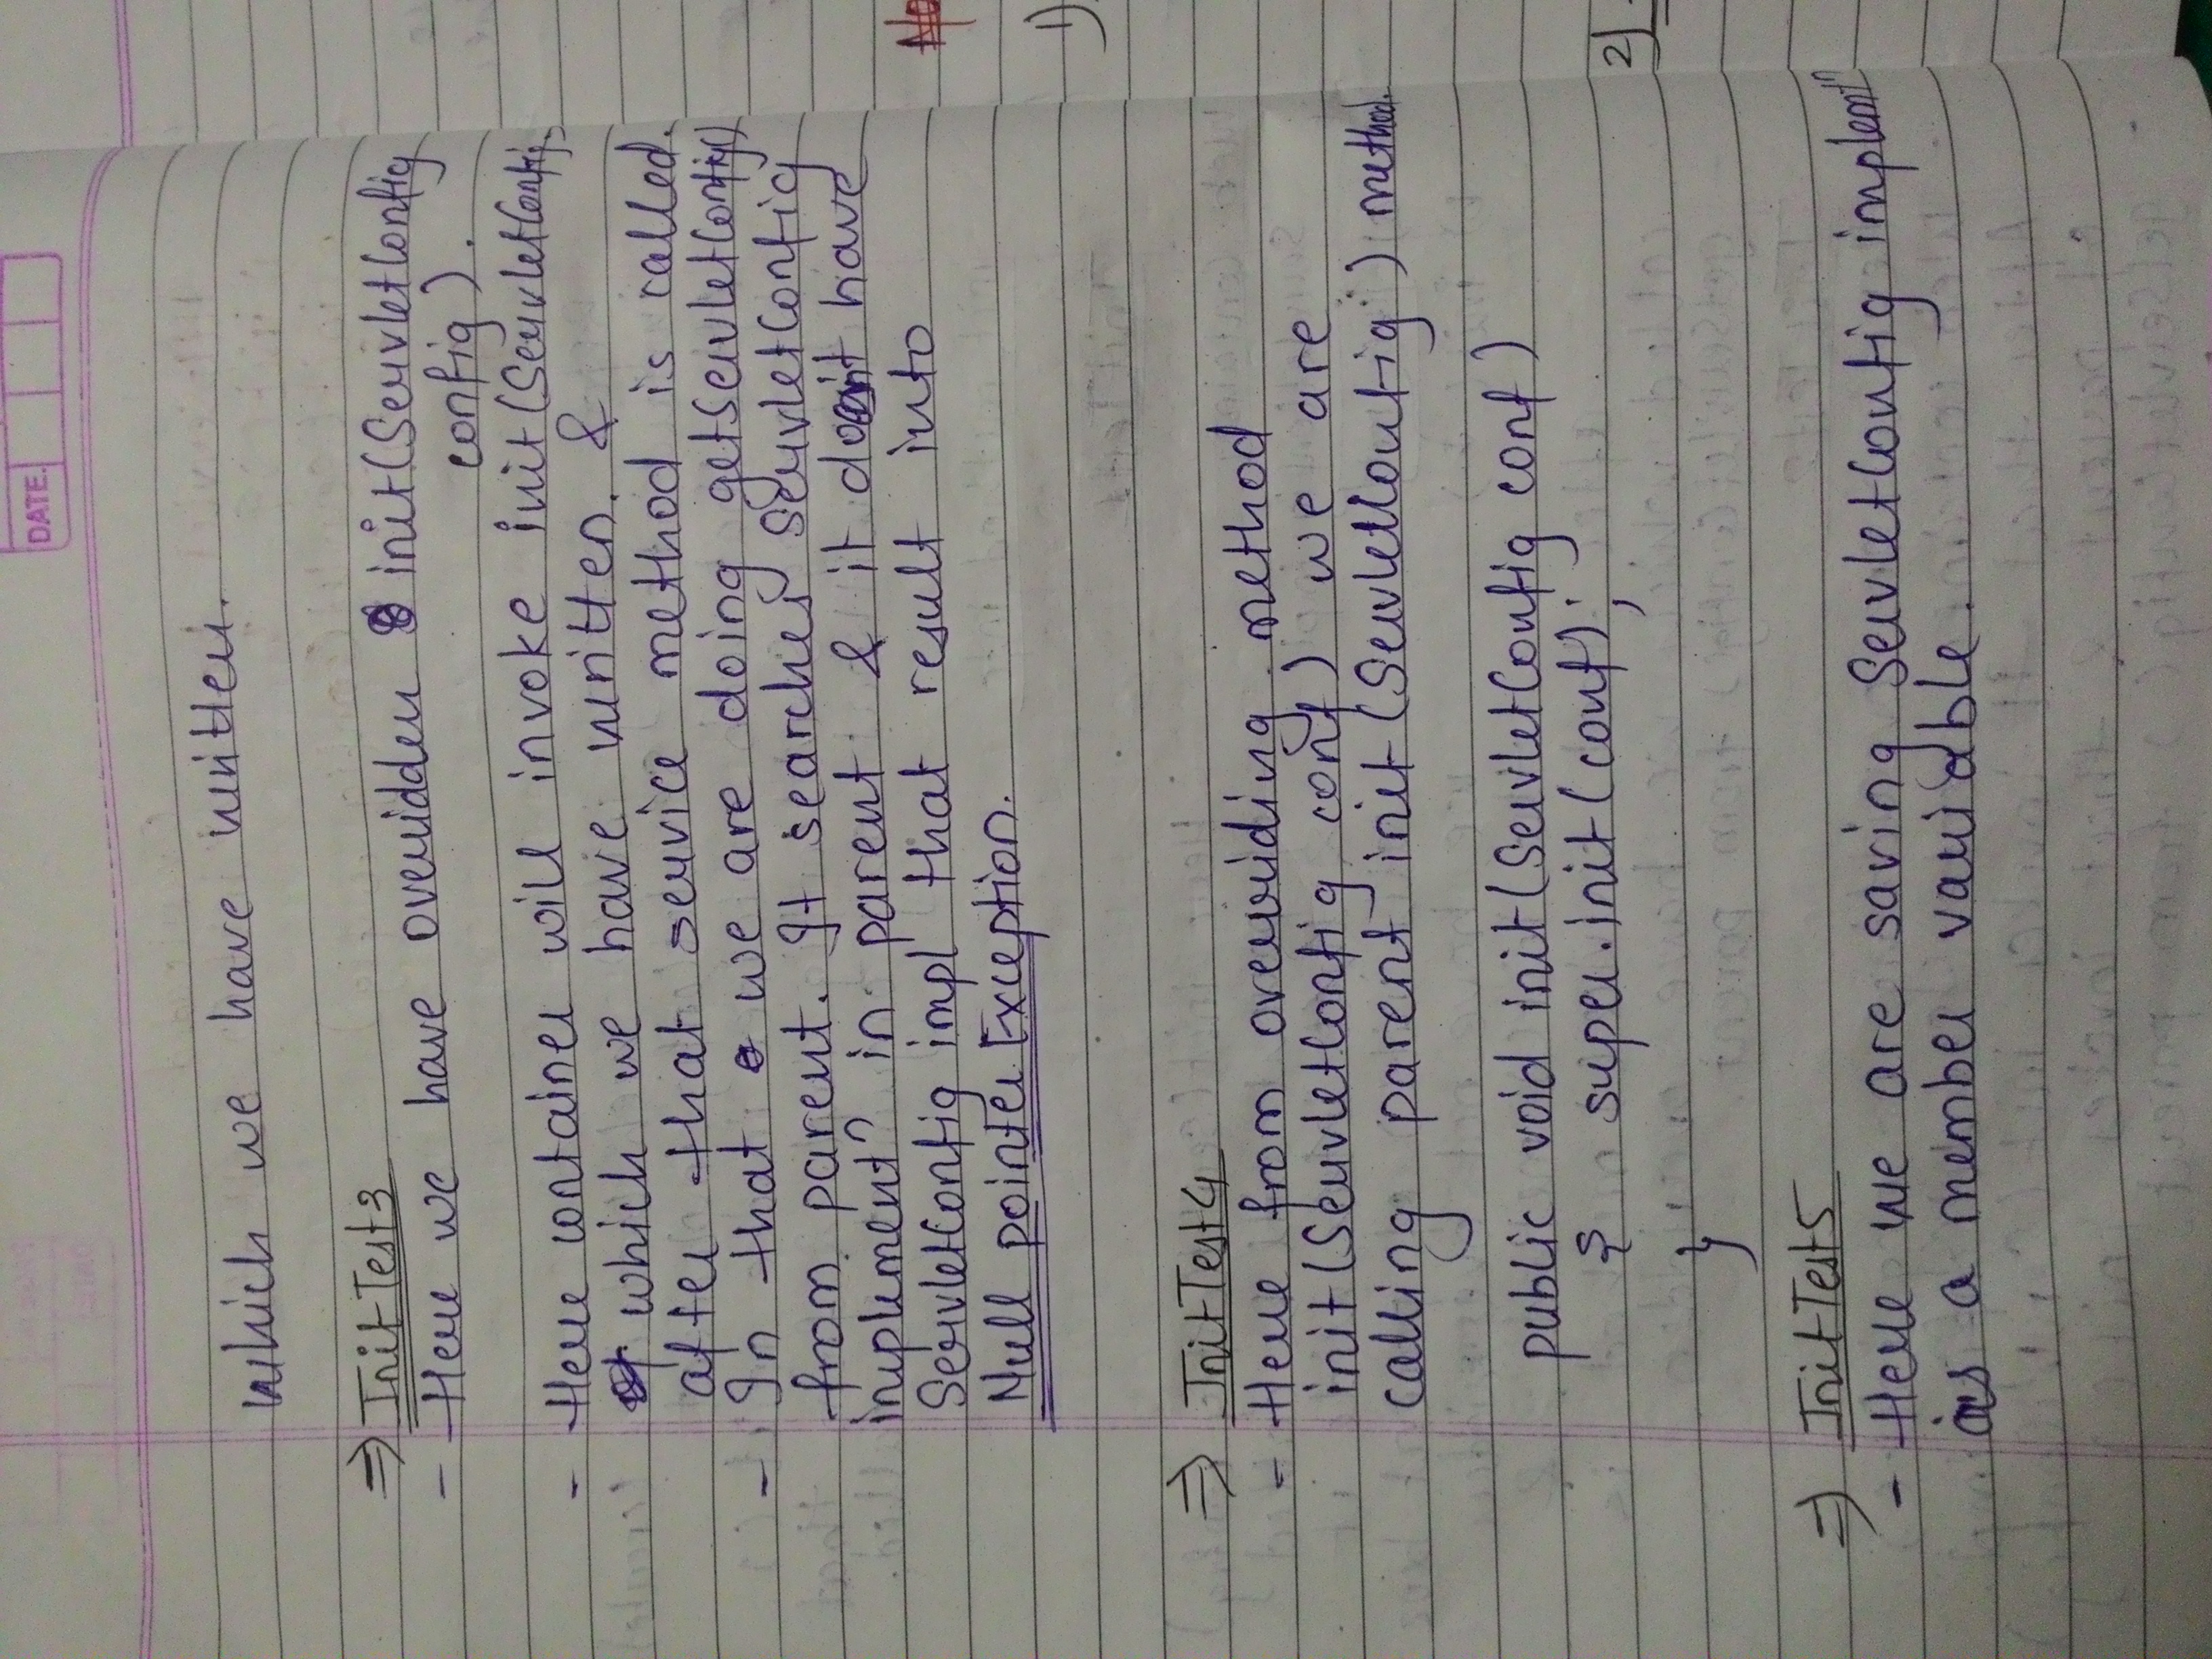 DATE.
which we have written.
⇒ InitTest3
- Here we have overridden init(ServletConfig
config).
- Here container will invoke init(ServletConfig
which we have written. &
after that service method is called.
- In that we are doing getServletConfig()
from parent. It searches ServletConfig
implementn in parent & it don't have
ServletConfig impl that result into
Null pointer Exception.
⇒ InitTest4
- Here from overriding method
init(ServletConfig conf) we are
calling parent init(ServletConfig) method.
public void init(ServletConfig conf)
{ super.init(conf);
}
⇒ InitTest5
- Here we are saving ServletConfig implemtn
as a member variable.
No
1)
2)